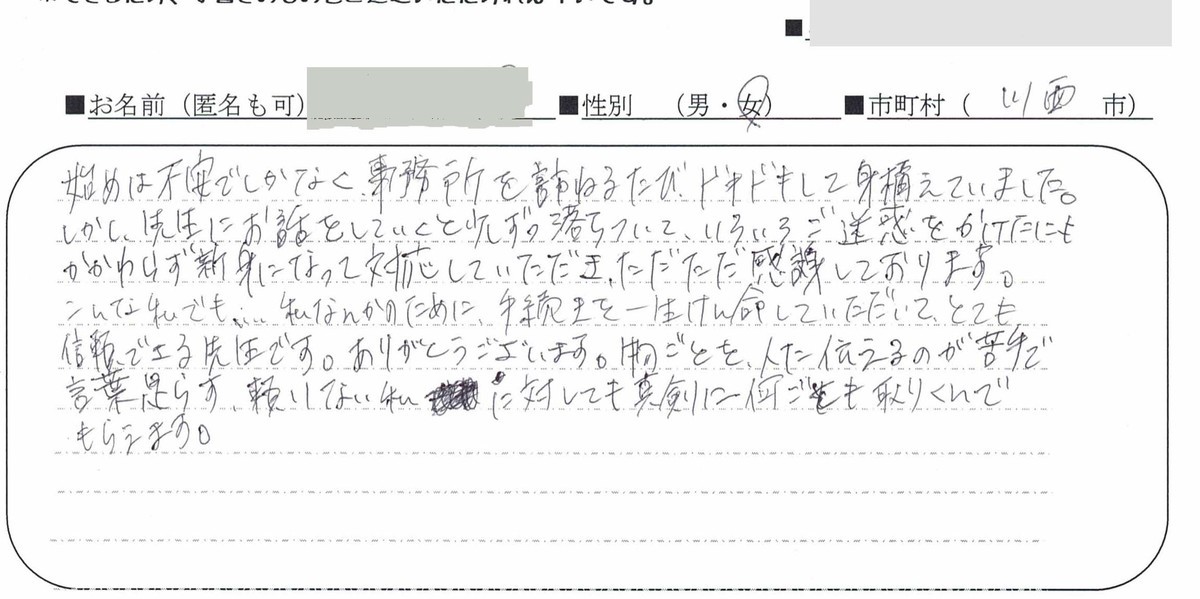 ■お名前（匿名も可） ■性別 （男・女） ■市町村（ 川西 市）
始めは不安でしかなく、事務所を訪ねるたび、ドキドキして身構えていました。
しかし、先生にお話をしていくと少しずつ落ちついて、いろいろご迷惑をかけたにも
かかわらず新身になって対応していただき、ただただ感謝しております。
こんな私でも、… 私なんかのために、手続きを一生けん命していただいて、とても
信頼できる先生です。ありがとうございます。物ごとを、人に伝えるのが苦手で
言葉足らず、頼りない私に対しても真剣に何ごとも取りくんで
もらえます。